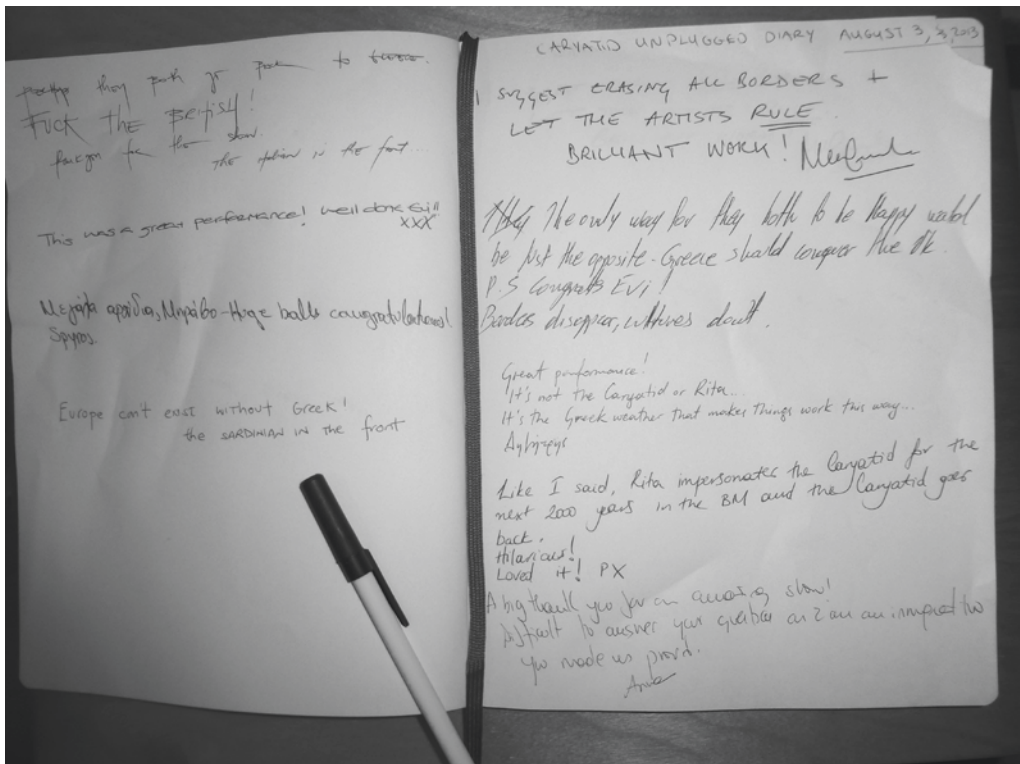 they both go to
FUCK THE BRITISH!
for the show.
THE italian in the front...
This was a great performance! Well done Evi!!
XXX
Μεγάλα αρχίδια, Μπράβο - Huge balls congratulations!
Spyros
Europe can't exist without Greek!
the SARDINIAN IN THE front
CARYATID UNPLUGGED DIARY AUGUST 3, 3, 2013
I SUGGEST ERASING ALL BORDERS +
LET THE ARTISTS RULE
BRILLIANT WORK!
The only way for they both to be Happy would
be just the opposite - Greece should conquer the UK.
P.S Congrats Evi!
Borders disappear, cultures don't.
Great performance!
It's not the Caryatid or Rita...
It's the Greek weather that makes things work this way...
Like I said, Rita impersonates the Caryatid for the
next 2000 years in the BM and the Caryatid goes
back.
Hilarious!
Loved it! PX
A big thank you for an amazing show!
Difficult to answer your question as I am an immigrant too
you made us proud.
Anna